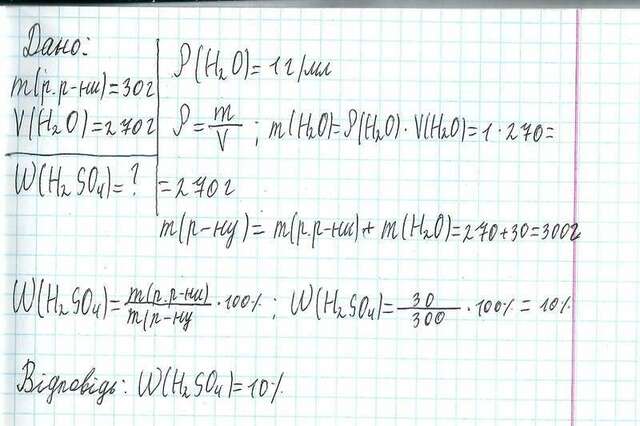 Дано:
m(р.р-ни)=30г
V(H₂O)=270г
W(H₂SO₄)=?
ρ(H₂O)=1г/мл
ρ=m/V; m(H₂O)=ρ(H₂O)·V(H₂O)=1·270=
=270г
m(р-ну)=m(р.р-ни)+m(H₂O)=270+30=300г
W(H₂SO₄)=m(р.р-ни)/m(р-ну·100%; W(H₂SO₄)=30/300·100%=10%
Відповідь: W(H₂SO₄)=10%